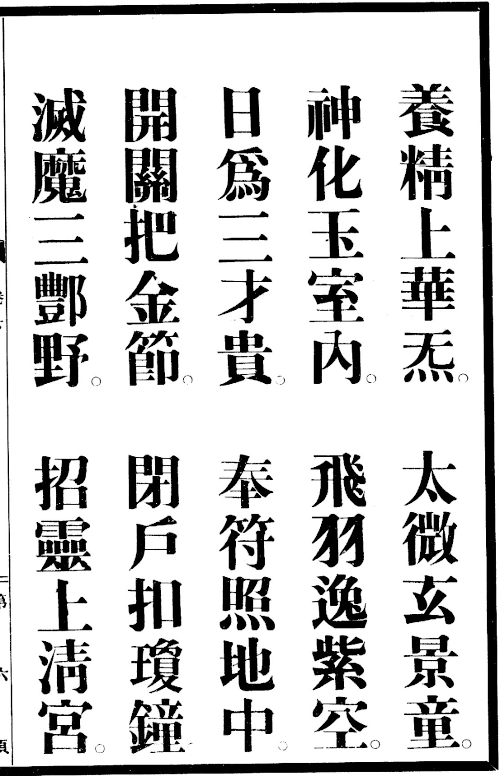 養精上華炁。太微玄景童。
神化玉室內。飛羽逸紫空。
日為三才貴。奉符照地中。
開關把金節。閉戶扣瓊鐘
滅魔三酆野。招靈上淸宮。